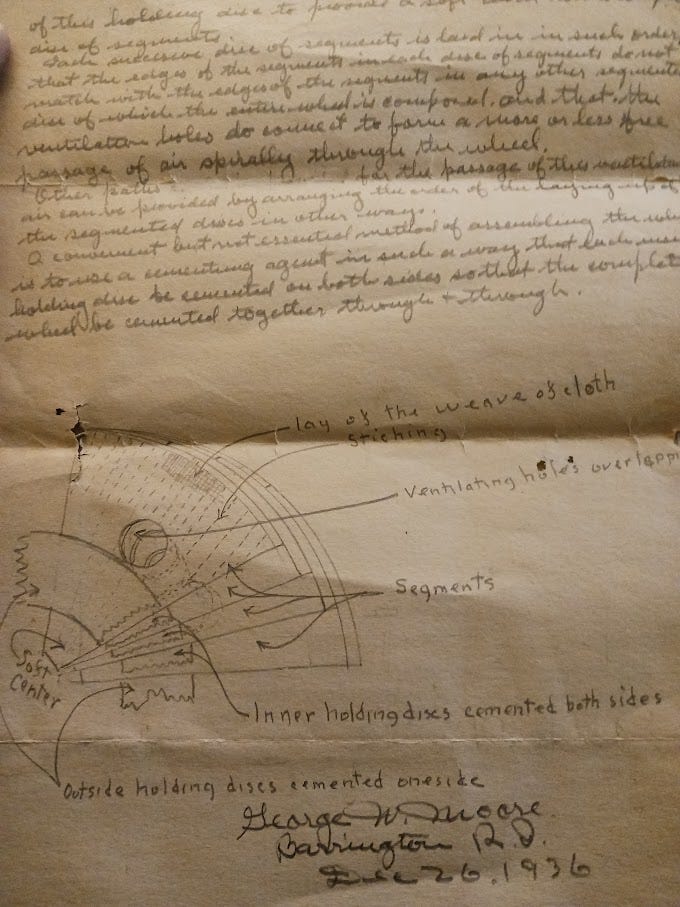 of this holding disc to provide a soft
disc of segments.
Each successive disc of segments is laid in in such order
that the edges of the segments in each disc of segments do not
match with the edges of the segments in any other segments
disc of which the entire wheel is composed. and that the
ventilation holes do connect to form a more or less free
passage of air spirally through the wheel.
Other paths for the passage of this ventilation
air can be provided by arranging the order of the laying up of
the segmented discs in other ways.
A convenient but not essential method of assembling the
is to use a cementing agent in such a way that each
holding disc be cemented on both sides so that the complete
wheel be cemented together through + through.
lay of the weave of cloth
Stiching
Ventilating holes overlappi
Segments
Soft
Center
Inner holding discs cemented both sides
Outside holding discs cemented one side
George W. Moore
Barrington R.I.
Dec 26, 1936